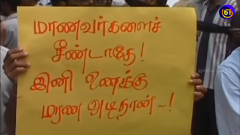 மாணவர்களைச்
சீண்டாதே!
இனி உனக்கு
மரண அடிதான்-!